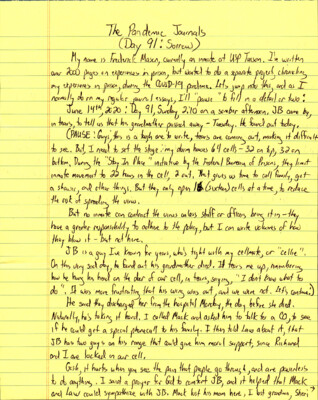 The Pandemic Journals
(Day 91: Sorrow)
My name is Frederick Mason, currently an inmate at USP Tucson. I've written
over 2000 pages on experiences in prison, but wanted to do a separate project, chronicling
my experiences in prison, during the COVID-19 pandemic. Let's jump into this, and as I
normally do in my regular journal essays, I'll "pause" to fill in a detail or two:
June 14th, 2020: Day 91, Sunday, 2:10 on a somber afternoon, JB came by,
in tears, to tell us that his grandmother passed away - Tuesday. He found out today.
(PAUSE: Guys, this is a tough one to write, tears are coming out, making it difficult
to see. But, I need to set the stage: my dorm houses 64 cells - 32 on top, 32 on
bottom. During the "Stay In Place" initiative by the Federal Bureau of Prisons, they limit
inmate movement to 22 hours in the cell, 2 out. That gives us time to call family, get
a shower, and other things. But they only open 16 cells at a time, to reduce
the risk of spreading the virus.
But no inmate can contract the virus unless staff or officers bring it in - they
have a greater responsibility to adhere to the policy, but I can write volumes of how
they blow it - but not here.
JB is a guy I've known for years, who's tight with my cellmate, or "cellie".
On this very sad day, he found out his grandmother died. It tears me up, remembering
how he hung his head on the door of our cell, in tears, saying, "I don't know what to
do". It was more frustrating that his wing was out, and we were not. Let's continue:)
He said they discharged her from the hospital Monday, the day before she died.
Naturally, he's taking it hard. I called Mack and asked him to talk to a CO, to see
if he could get a special phone call to his family. I then told Law about it, that
JB has two guys on his range that could give him moral support, since Richard
and I are locked in our cells.
Gosh, it hurts when you see the pain that people go through, and are powerless
to do anything. I said a prayer for God to comfort JB, and it helped that Mack
and Law could sympathize with JB. Mack lost his mom here, I lost grandma, Sheri